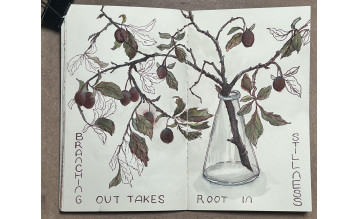 BRANCHING
OUT TAKES ROOT IN
STILLNESS